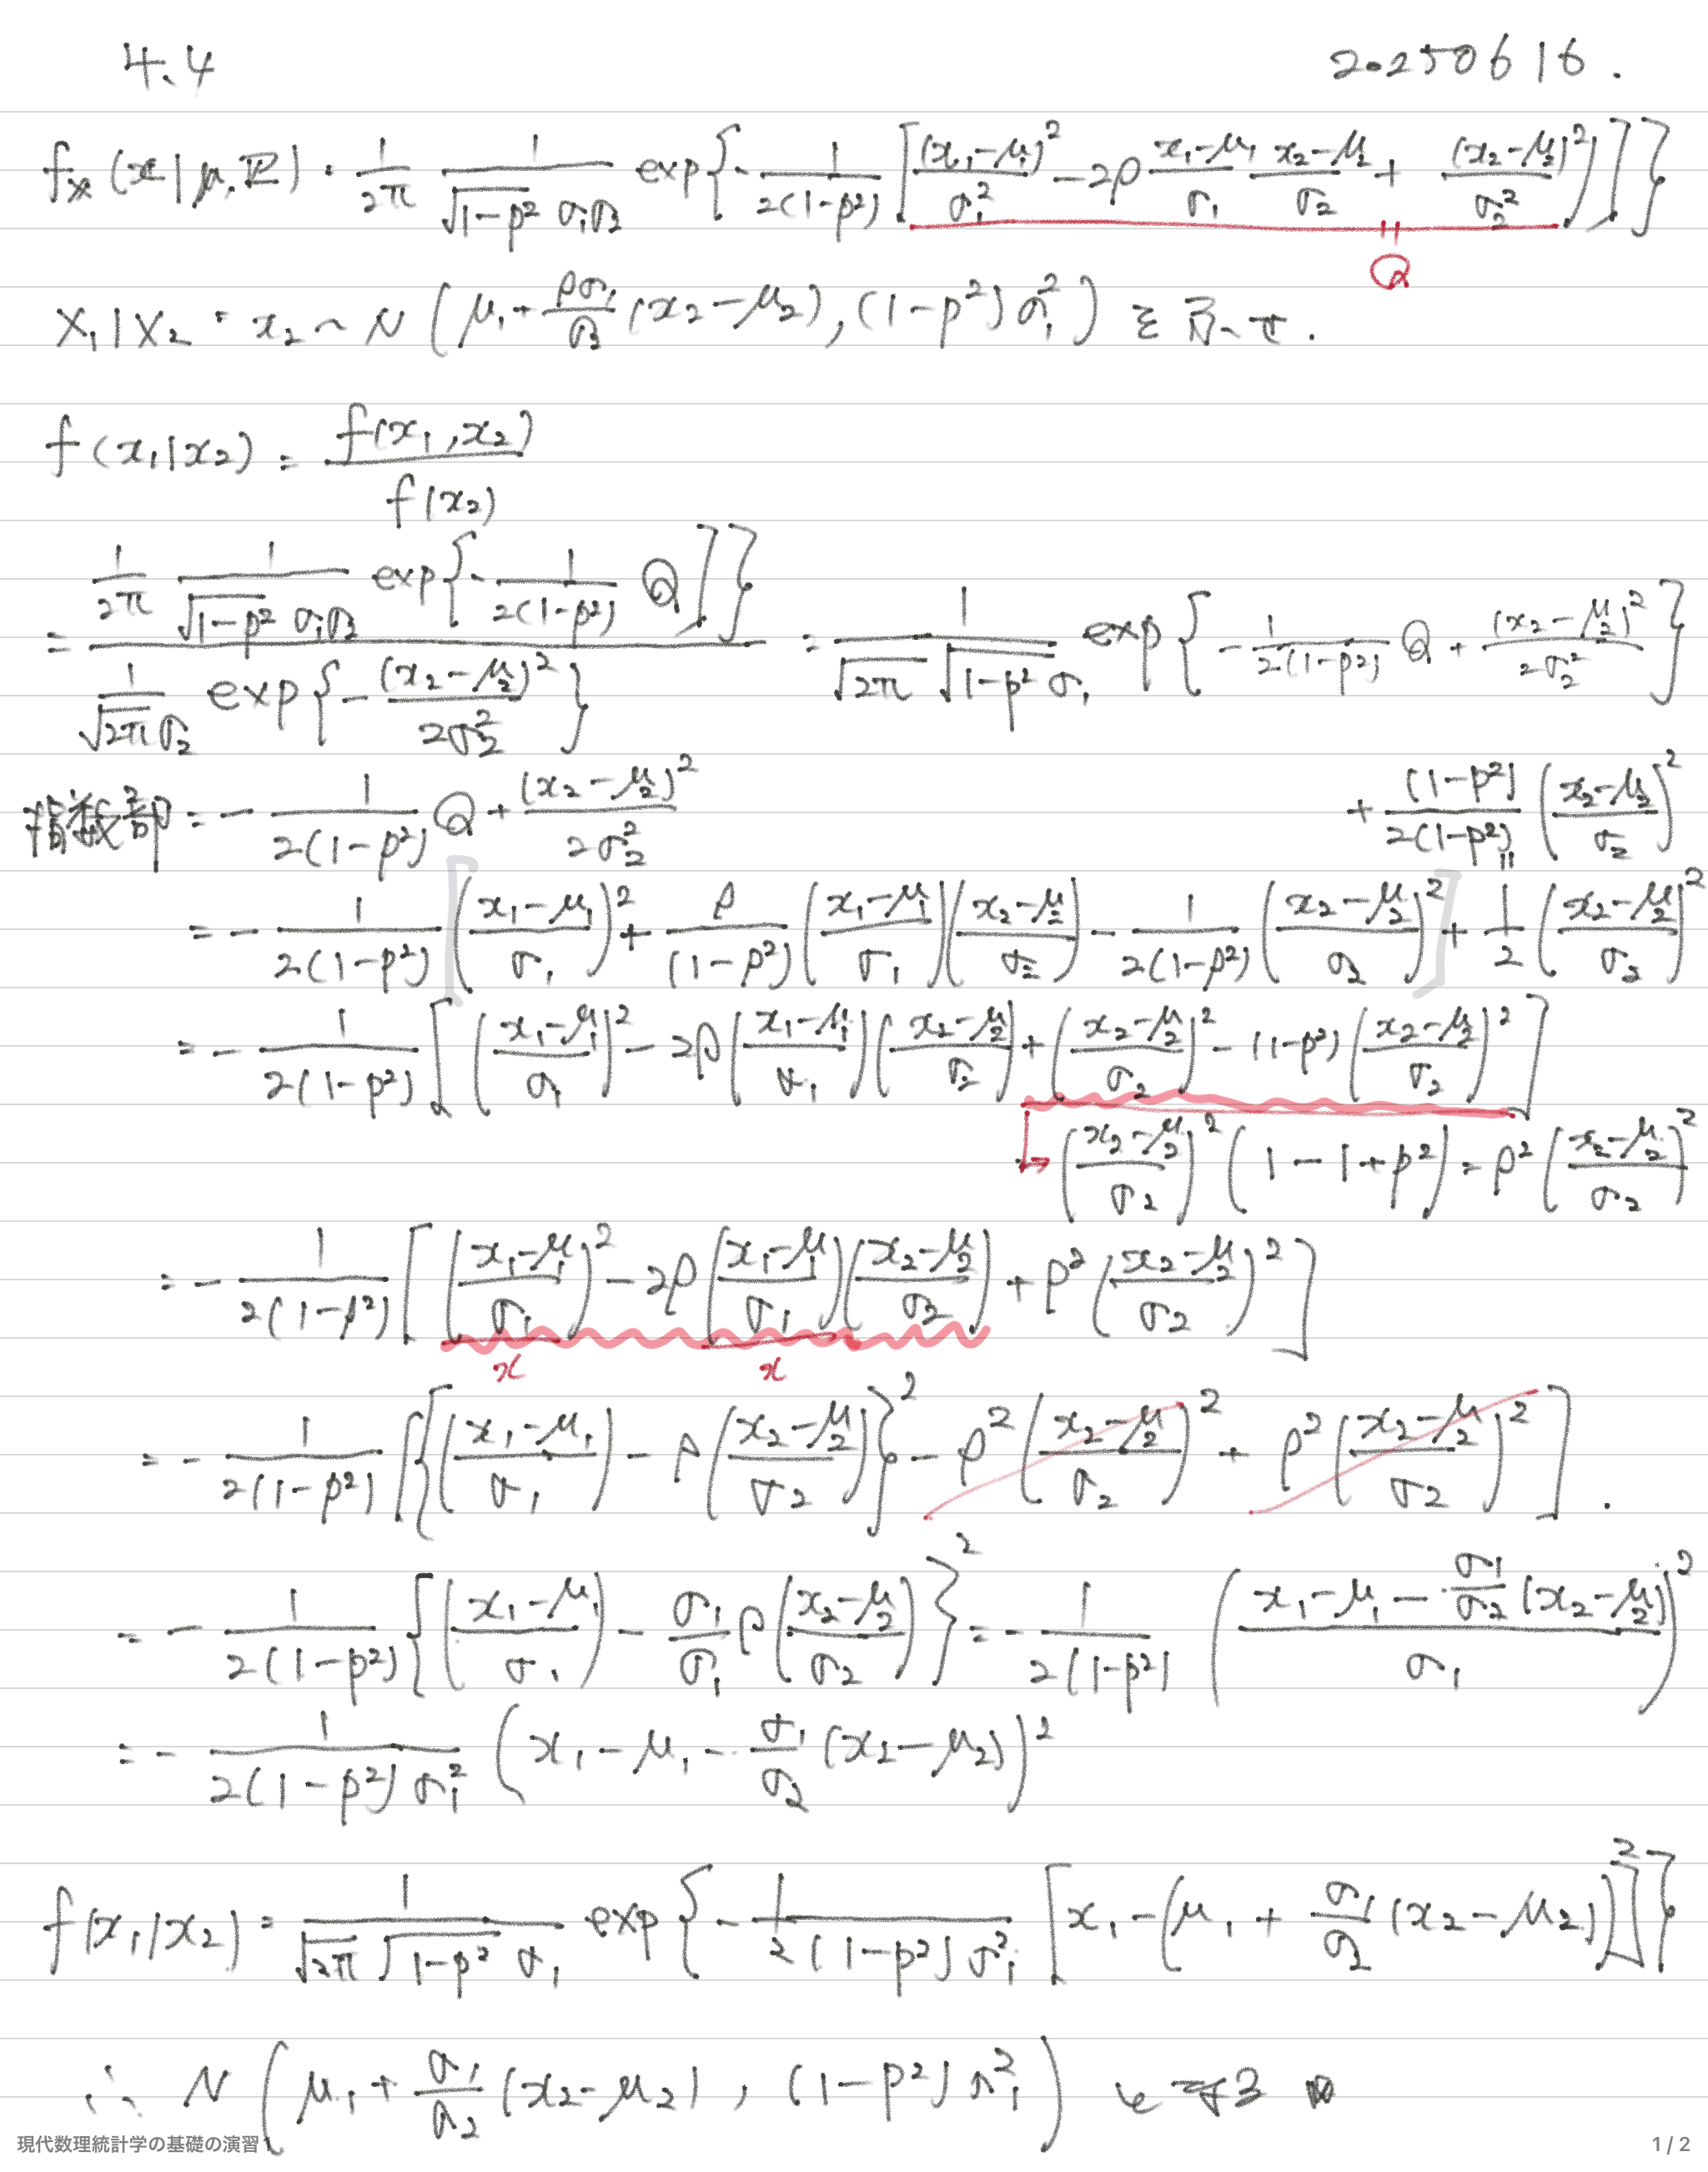 4.4 20250616.
f_X (x | μ, Σ) = \frac{1}{2π} \frac{1}{\sqrt{1-ρ^2} σ_1σ_2} exp{ -\frac{1}{2(1-ρ^2)} [ \frac{(x_1-μ_1)^2}{σ_1^2} - 2ρ \frac{x_1-μ_1}{σ_1} \frac{x_2-μ_2}{σ_2} + \frac{(x_2-μ_2)^2}{σ_2^2} ) ] }
= Q
X_1 | X_2 = x_2 ~ N ( μ_1 + \frac{ρσ_1}{σ_2} (x_2-μ_2), (1-ρ^2) σ_1^2 ) を示す.
f(x_1|x_2) = \frac{f(x_1, x_2)}{f(x_2)}
= \frac{\frac{1}{2π} \frac{1}{\sqrt{1-ρ^2} σ_1σ_2} exp{ -\frac{1}{2(1-ρ^2)} Q ] }}{\frac{1}{\sqrt{2π} σ_2} exp{ -\frac{(x_2-μ_2)^2}{2σ_2^2} }} = \frac{1}{\sqrt{2π} \sqrt{1-ρ^2} σ_1} exp{ -\frac{1}{2(1-ρ^2)} Q + \frac{(x_2-μ_2)^2}{2σ_2^2} }
指数部 = -\frac{1}{2(1-ρ^2)} Q + \frac{(x_2-μ_2)^2}{2σ_2^2} + \frac{(1-ρ^2)}{2(1-ρ^2)} (\frac{x_2-μ_2}{σ_2})^2
= -\frac{1}{2(1-ρ^2)} [ (\frac{x_1-μ_1}{σ_1})^2 + \frac{ρ}{(1-ρ^2)} (\frac{x_1-μ_1}{σ_1}) (\frac{x_2-μ_2}{σ_2}) - \frac{1}{2(1-ρ^2)} (\frac{x_2-μ_2}{σ_2})^2 ] + \frac{1}{2} (\frac{x_2-μ_2}{σ_2})^2
= -\frac{1}{2(1-ρ^2)} [ (\frac{x_1-μ_1}{σ_1})^2 - 2ρ (\frac{x_1-μ_1}{σ_1}) (\frac{x_2-μ_2}{σ_2}) + (\frac{x_2-μ_2}{σ_2})^2 - (1-ρ^2) (\frac{x_2-μ_2}{σ_2})^2 ]
→ (\frac{x_2-μ_2}{σ_2})^2 (1-1+ρ^2) = ρ^2 (\frac{x_2-μ_2}{σ_2})^2
= -\frac{1}{2(1-ρ^2)} [ (\frac{x_1-μ_1}{σ_1})^2 - 2ρ (\frac{x_1-μ_1}{σ_1}) (\frac{x_2-μ_2}{σ_2}) + ρ^2 (\frac{x_2-μ_2}{σ_2})^2 ]
x x
= -\frac{1}{2(1-ρ^2)} [ { (\frac{x_1-μ_1}{σ_1}) - ρ (\frac{x_2-μ_2}{σ_2}) }^2 - ρ^2 (\frac{x_2-μ_2}{σ_2})^2 + ρ^2 (\frac{x_2-μ_2}{σ_2})^2 ] .
= -\frac{1}{2(1-ρ^2)} { (\frac{x_1-μ_1}{σ_1}) - \frac{σ_1}{σ_1} ρ (\frac{x_2-μ_2}{σ_2}) }^2 = -\frac{1}{2(1-ρ^2)} ( \frac{x_1-μ_1-\frac{σ_1}{σ_2}(x_2-μ_2)}{σ_1} )^2
= -\frac{1}{2(1-ρ^2) σ_1^2} ( x_1-μ_1-\frac{σ_1}{σ_2} (x_2-μ_2) )^2
f(x_1|x_2) = \frac{1}{\sqrt{2π} \sqrt{1-ρ^2} σ_1} exp{ -\frac{1}{2(1-ρ^2) σ_1^2} [ x_1 - (μ_1 + \frac{σ_1}{σ_2} (x_2-μ_2)) ]^2 }
∴ N ( μ_1 + \frac{σ_1}{σ_2} (x_2-μ_2), (1-ρ^2) σ_1^2 )
現代数理統計学の基礎の演習 1 1 / 2